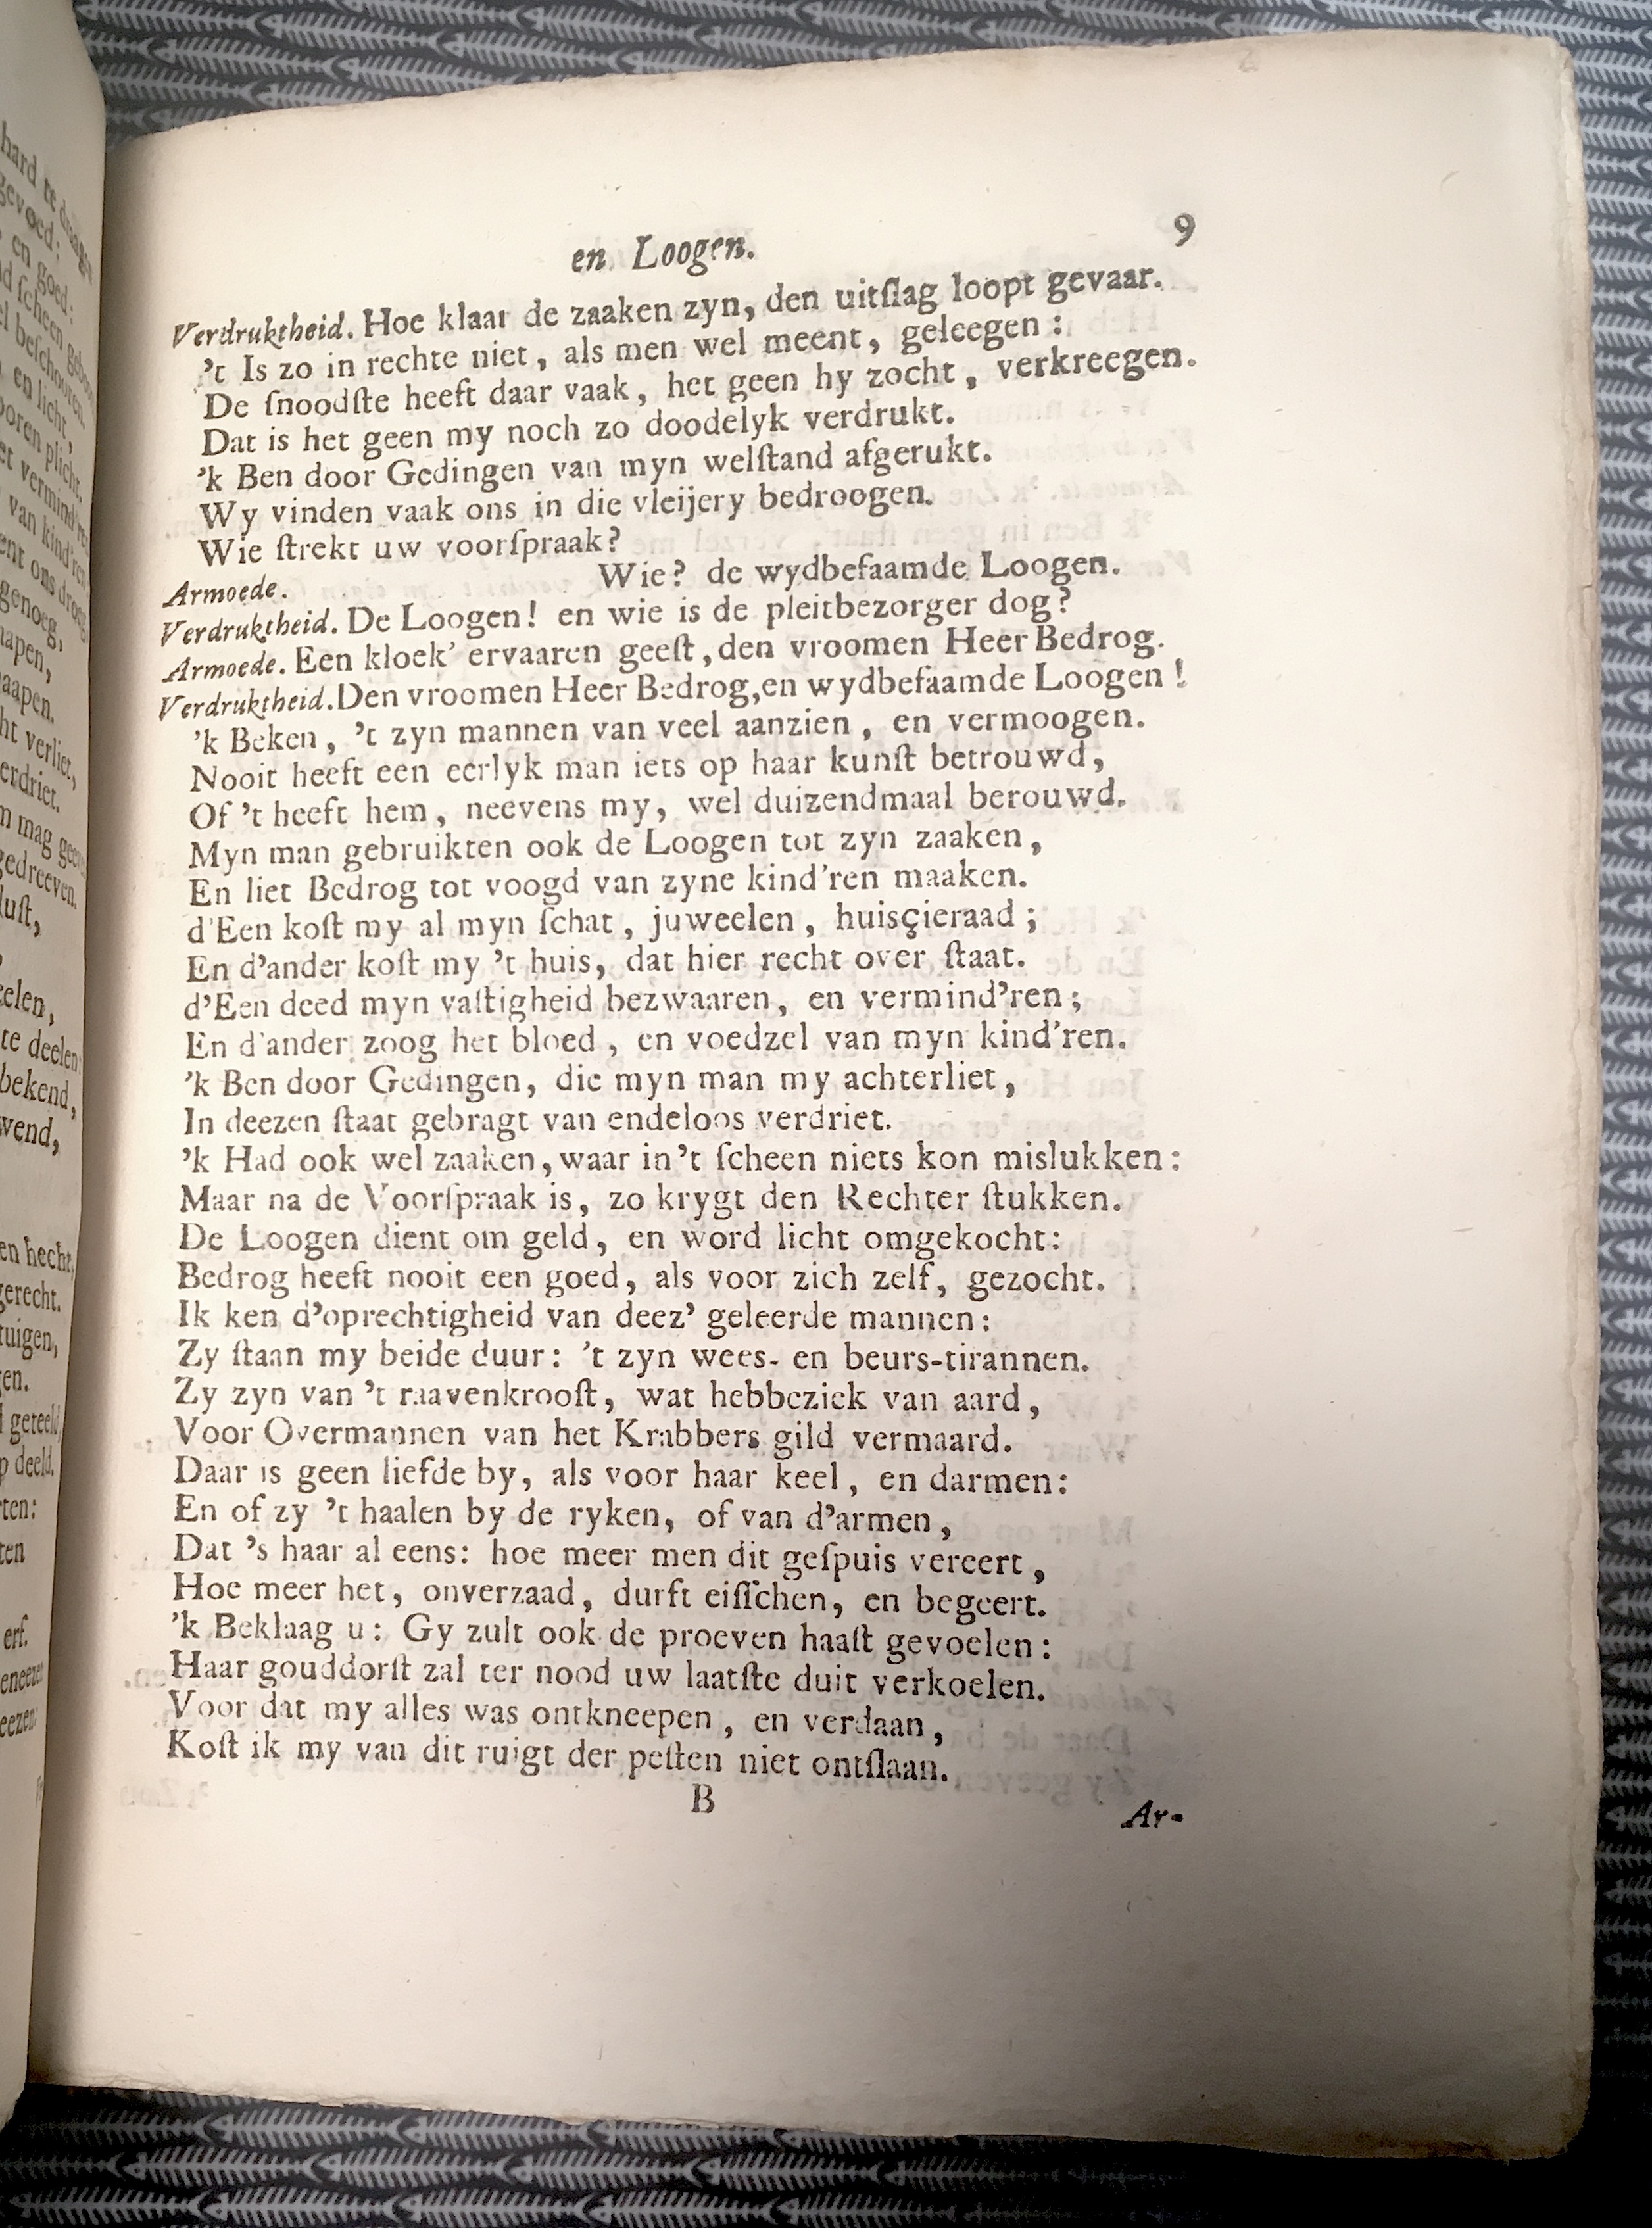 en Loogen. 9
Verdruktheid. Hoe klaar de zaaken zyn, den uitſlag loopt gevaar.
't Is zo in rechte niet, als men wel meent, geleegen:
De ſnoodſte heeft daar vaak, het geen hy zocht, verkreegen.
Dat is het geen my noch zo doodelyk verdrukt.
'k Ben door Gedingen van myn welſtand afgerukt.
Wy vinden vaak ons in die vleijery bedroogen.
Wie ſtrekt uw voorſpraak?
Armoede. Wie? de wydbefaamde Loogen.
Verdruktheid. De Loogen! en wie is de pleitbezorger dog?
Armoede. Een kloek' ervaaren geeſt, den vroomen Heer Bedrog.
Verdruktheid. Den vroomen Heer Bedrog, en wydbefaamde Loogen!
'k Beken, 't zyn mannen van veel aanzien, en vermoogen.
Nooit heeft een eerlyk man iets op haar kunſt betrouwd,
Of 't heeft hem, neevens my, wel duizendmaal berouwd.
Myn man gebruikten ook de Loogen tot zyn zaaken,
En liet Bedrog tot voogd van zyne kind'ren maaken.
d'Een koſt my al myn ſchat, juweelen, huisçieraad;
En d'ander koſt my 't huis, dat hier recht over ſtaat.
d'Een deed myn vaſtigheid bezwaaren, en vermind'ren;
En d'ander zoog het bloed, en voedzel van myn kind'ren.
'k Ben door Gedingen, die myn man my achterliet,
In deezen ſtaat gebragt van endeloos verdriet.
'k Had ook wel zaaken, waar in 't ſcheen niets kon mislukken:
Maar na de Voorſpraak is, zo krygt den Rechter ſtukken.
De Loogen dient om geld, en word licht omgekocht:
Bedrog heeft nooit een goed, als voor zich zelf, gezocht.
Ik ken d'oprechtigheid van deez' geleerde mannen:
Zy ſtaan my beide duur: 't zyn wees- en beurs-tirannen.
Zy zyn van 't raavenkrooſt, wat hebbeziek van aard,
Voor Overmannen van het Krabbers gild vermaard.
Daar is geen liefde by, als voor haar keel, en darmen:
En of zy 't haalen by de ryken, of van d'armen,
Dat 's haar al eens: hoe meer men dit geſpuis vereert,
Hoe meer het, onverzaad, durft eiſſchen, en begeert.
'k Beklaag u: Gy zult ook de proeven haaſt gevoelen:
Haar gouddorſt zal ter nood uw laatſte duit verkoelen.
Voor dat my alles was ontkneepen, en verdaan,
Koſt ik my van dit ruigt der peſten niet ontſlaan.
B
Ar-